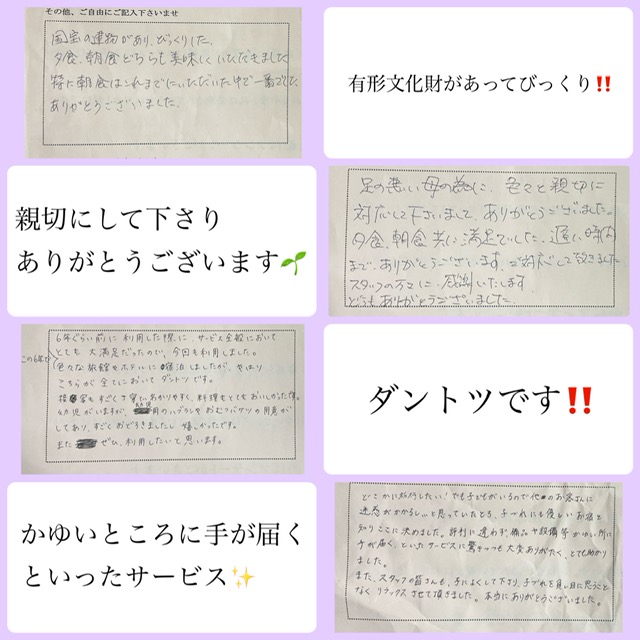 その他、ご自由にご記入下さいませ
国宝の建物があり、びっくりした。
夕食、朝食どちらも美味しくいただきました
特に朝食はこれまでにいただいた中で一番でした。
ありがとうございました。
有形文化財があってびっくり‼️
親切にして下さり
ありがとうございます🌱
足の悪い母の為に、色々と親切に
対応して下さいまして、ありがとうございました。
夕食、朝食共に満足でした。遅い時間
まで、ありがとうございます。ご対応して頂きました
スタッフの方々に、感謝いたします
どうもありがとうございました
6年ぐらい前に利用した際に、サービス全般において
とても大満足だったので、今回も利用しました。
この6年で
色々な旅館やホテルに宿泊しましたが、やはり
こちらが全てにおいてダントツです。
接客もすごく丁寧でわかりやすく、料理もとてもおいしかった。
幼児がいますが、幼児用の歯ブラシやおむつバケツの用意が
してあり、すごくおどろきましたし嬉しかったです。
また ぜひ、利用したいと思います。
ダントツです‼️
かゆいところに手が届く
といったサービス✨
どこかに旅行したい!でも子どもがいるので他のお客さんに
迷惑がかかるし…と思っていたとき、子づれにも優しいお宿と
知りここに決めました。評判に違わず、備品や設備等かゆい所に
手が届く、といったサービスに驚きつつも大変ありがたく、とても助かり
ました。
また、スタッフの皆さんも、子によくして下さり、子づれを負い目に思うこと
なくリラックスさせて頂きました。本当にありがとうございました。